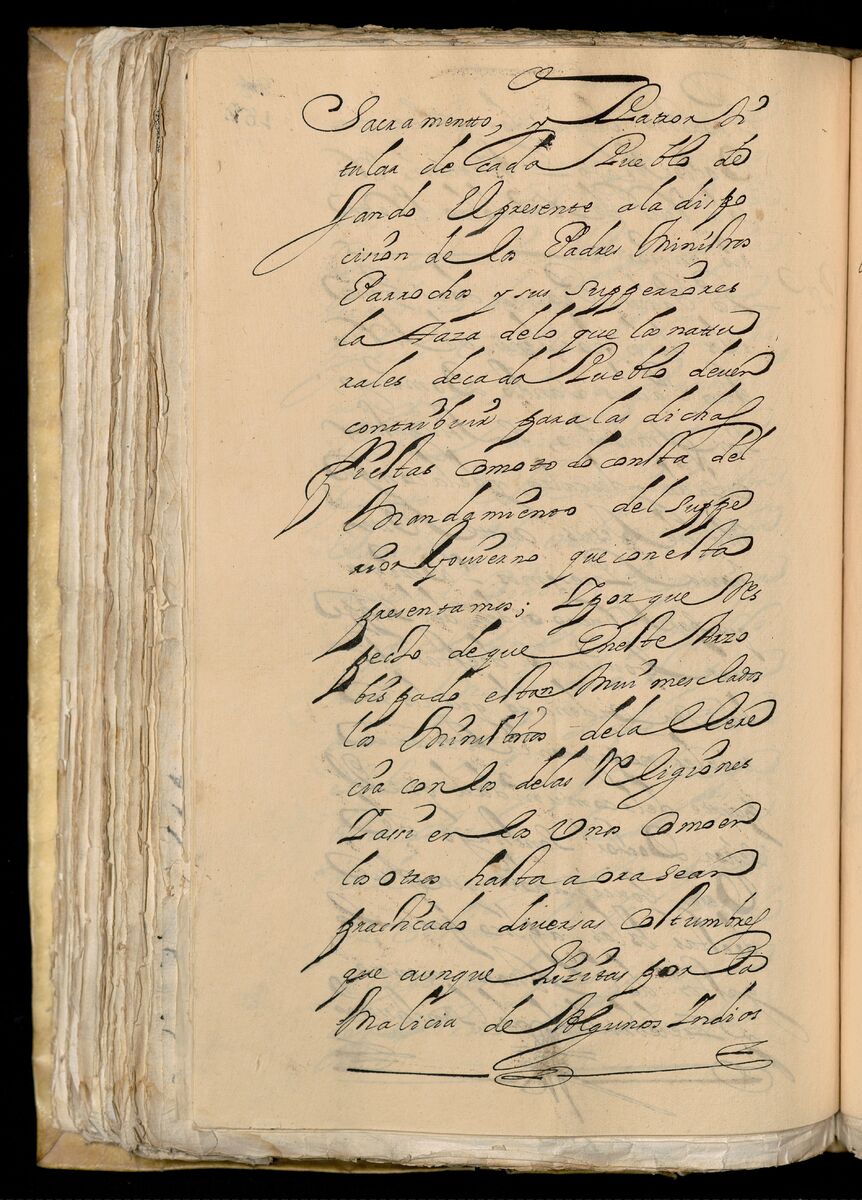 Sacramentto, y Patron ti
tular de cada Pueblo de
Jando el presente a la dispo
cision de los Padres Ministros
Parrochos y sus supperiores
la taza delo que los natu
rales decada Pueblo deven
contribuir para las dichas
Fiestas como todo consta del
Mandamiento del suppe
rior govierno que con esta
presentamos; Y por que Res
pecto de que En este Arzo
bispado estan Mui mesclados
los Ministerios dela Clere
cia con los delas Religiones
Y assi en los Unos Como en
los otros hasta aora sean
practicado diversas Costumbres
que aunque Lizitas por la
Malicia de Algunos Indios